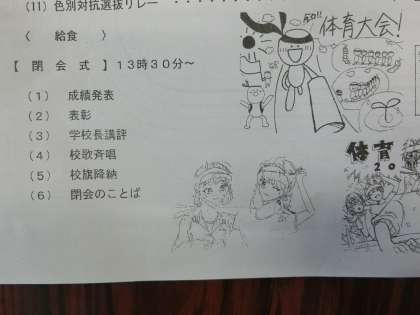 (11) 色別対抗選抜リレー ・・・・・・・
〈 給食 〉
【 閉 会 式 】13時30分~
(1) 成績発表
(2) 表彰
(3) 学校長講評
(4) 校歌斉唱
(5) 校旗降納
(6) 閉会のことば
体育大会!
体育